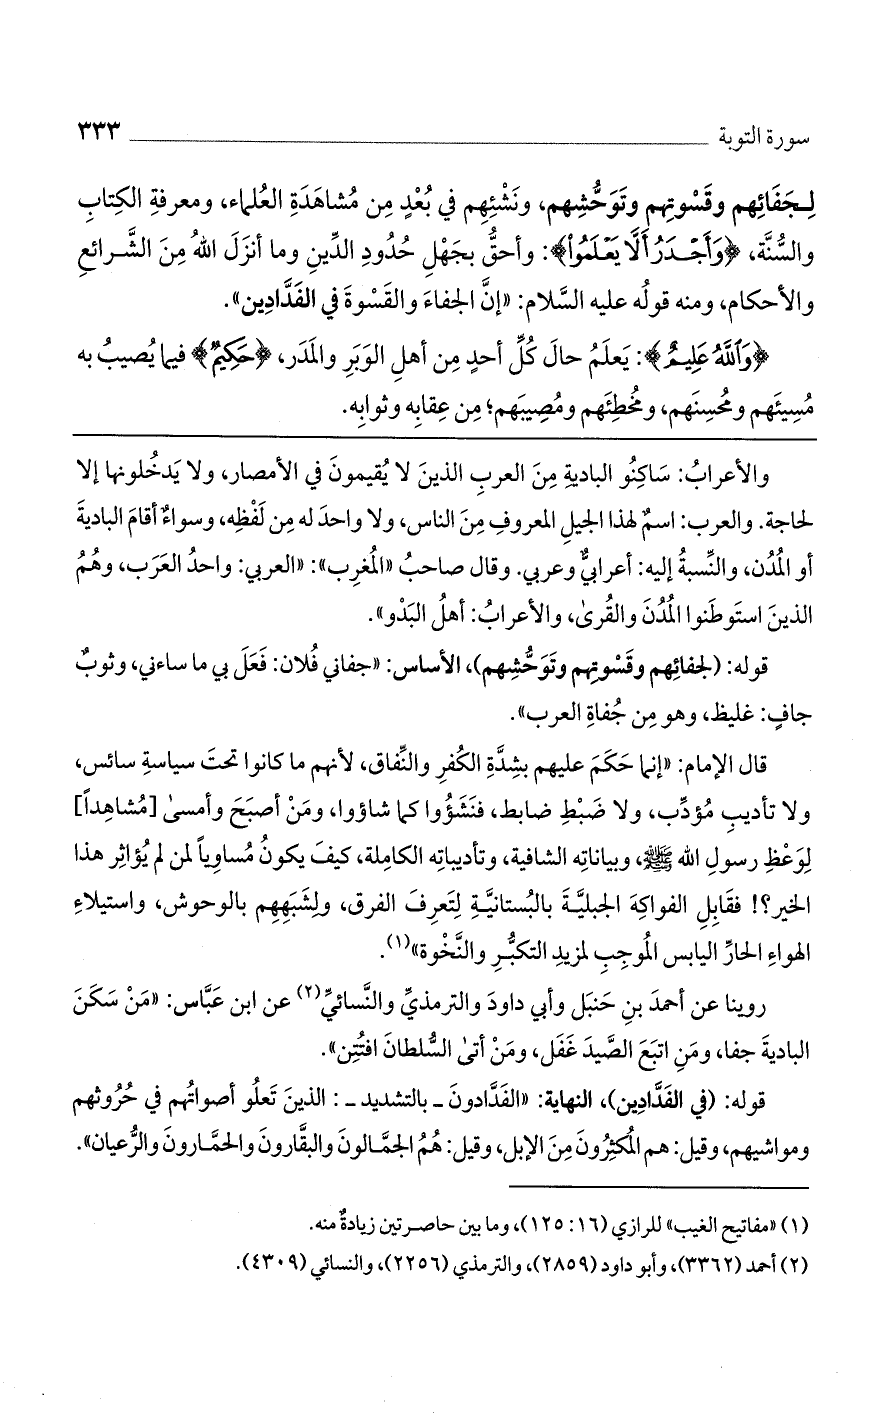 سورة التوبة ٣٣٣
لِـجَفَائِهم وقَسْوتِهم وتَوَحُّشِهم، ونَشْئِهم في بُعْدٍ مِن مُشاهَدَةِ العُلماء، ومعرفةِ الكِتابِ
والسُّنَّة، ﴿وَأَجْدَرُ أَلَّا يَعْلَمُوا۟﴾: وأحقُّ بجَهْلِ حُدُودِ الدِّينِ وما أنزَلَ اللهُ مِنَ الشَّـرائعِ
والأحكام، ومنه قولُه عليه السَّلام: «إنَّ الجفاءَ والقَسْوةَ في الفَدَّادِين».
﴿وَٱللَّهُ عَلِيمٌ﴾: يَعلَمُ حالَ كُلِّ أحدٍ مِن أهلِ الوَبَرِ والمَدَر، ﴿حَكِيمٌ﴾ فيما يُصيبُ به
مُسِيئَهم ومُحْسِنَهم، ومُخْطِئَهم ومُصِيبَهم؛ مِن عِقابِه وثوابِه.
والأعرابُ: سَاكِنُو الباديةِ مِنَ العربِ الذينَ لا يُقيمونَ في الأمصار، ولا يَدخُلونها إلا
لحاجة. والعرب: اسمٌ لهذا الجيلِ المعروفِ مِنَ الناس، ولا واحدَ له مِن لَفْظِه، وسواءٌ أقامَ الباديةَ
أو المُدُن، والنِّسبةُ إليه: أعرابيٌّ وعربي. وقال صاحبُ «المُغرِب»: «العربي: واحدُ العَرَب، وهُمُ
الذينَ استَوطَنوا المُدُنَ والقُرىٰ، والأعرابُ: أهلُ البَدْو».
قوله: (لجفائِهم وقَسْوتِهم وتَوَحُّشِهم)، الأساس: «جفاني فُلان: فَعَلَ بي ما ساءني، وثوبٌ
جافٍ: غليظ، وهو مِن جُفاةِ العرب».
قال الإمام: «إنما حَكَمَ عليهم بشِدَّةِ الكُفرِ والنِّفاق، لأنهم ما كانوا تحتَ سياسةِ سائس،
ولا تأديبِ مُؤدِّب، ولا ضَبْطِ ضابط، فنَشَؤُوا كما شاؤوا، ومَنْ أصبَحَ وأمسىٰ [مُشاهِداً]
لِوَعْظِ رسولِ الله ﷺ، وبياناتِه الشافية، وتأديباتِه الكاملة، كيفَ يكونُ مُساوياً لمن لم يُؤاثِر هذا
الخير؟! فقَابِلِ الفواكِهَ الجبليَّةَ بالبُستانيَّةِ لِتَعرِفَ الفرق، ولِشَبَهِهِم بالوحوش، واستيلاءِ
الهواءِ الحارِّ اليابس المُوجِبِ لمزيدِ التكبُّـرِ والنَّخْوة»(١).
روينا عن أحمدَ بنِ حَنبَل وأبي داودَ والترمذيِّ والنَّسائيِّ(٢) عن ابن عَبَّاس: «مَنْ سَكَنَ
الباديةَ جفا، ومَنِ اتبَعَ الصَّيدَ غَفَل، ومَنْ أتىٰ السُّلطانَ افتُتِن».
قوله: (في الفَدَّادِين)، النهاية: «الفَدَّادونَ ـ بالتشديد ـ : الذينَ تَعلُو أصواتُهم في حُرُوثهم
ومواشيهم، وقيل: هم المُكثِرُونَ مِنَ الإبل، وقيل: هُمُ الجمَّـالونَ والبقَّارونَ والحمَّـارونَ والرُّعيان».
(١) «مفاتيح الغيب» للرازي (١٦: ١٢٥)، وما بين حاصـرتين زيادةٌ منه.
(٢) أحمد (٣٣٦٢)، وأبو داود (٢٨٥٩)، والترمذي (٢٢٥٦)، والنسائي (٤٣٠٩).